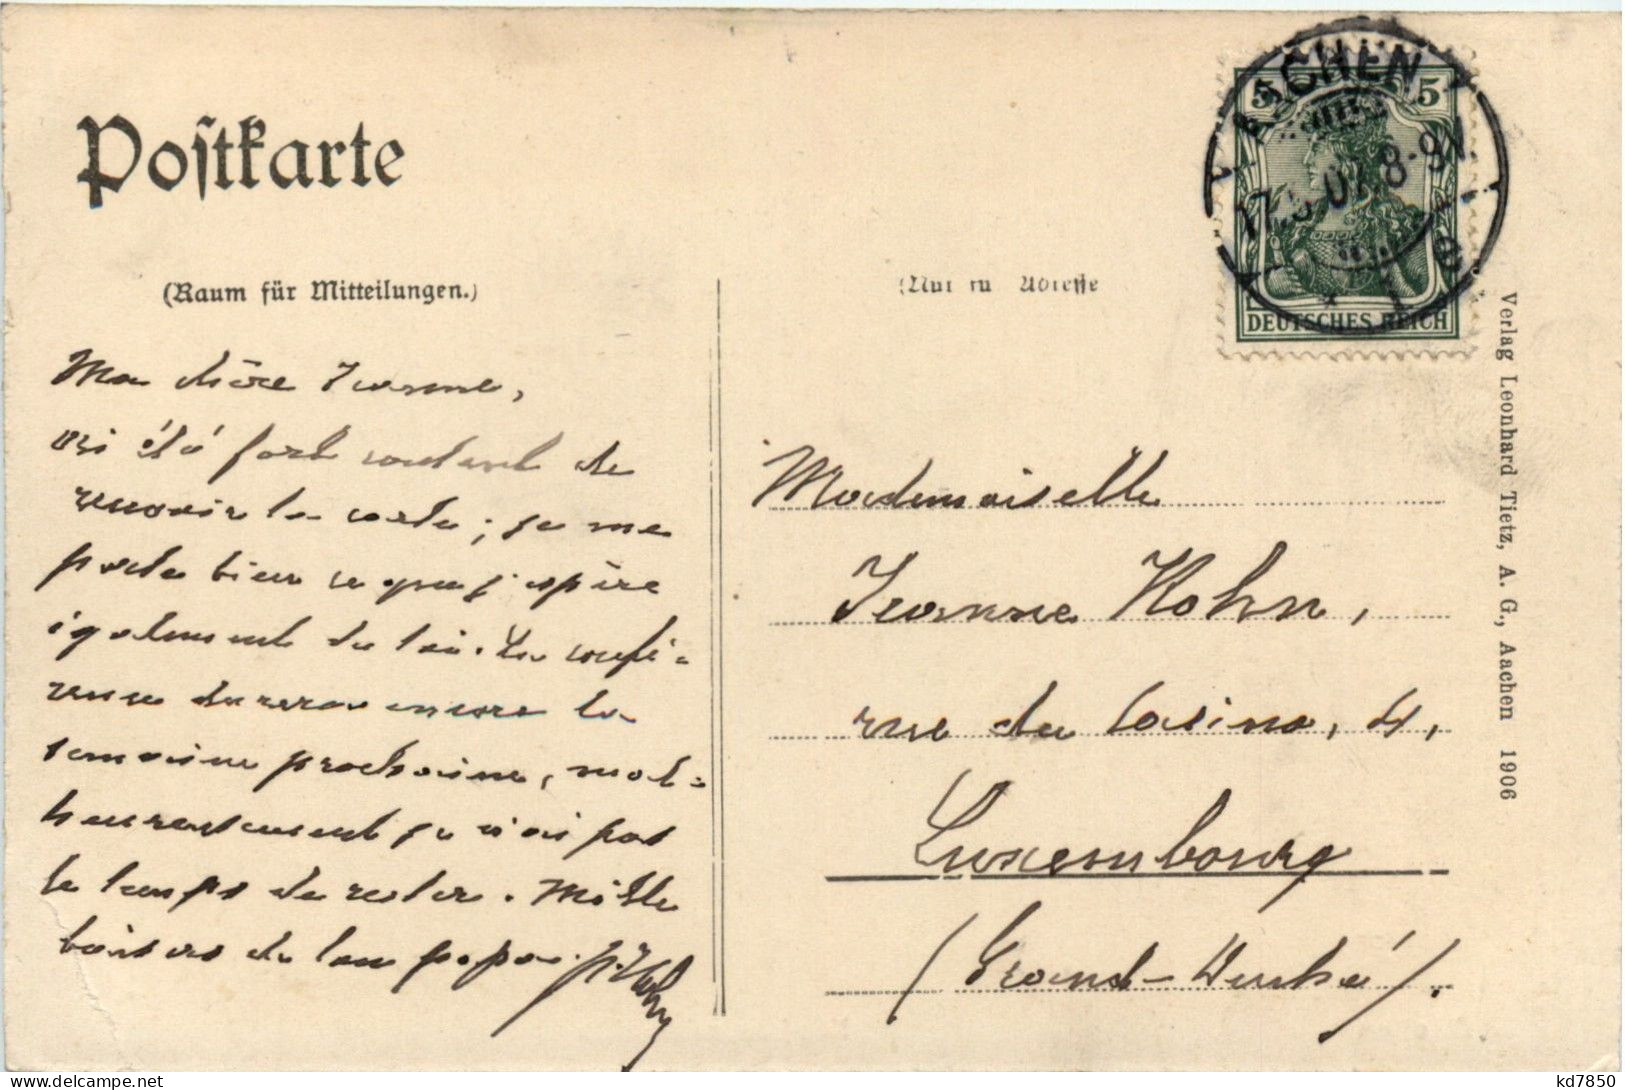 Postkarte
(Raum für Mitteilungen.)
Ma chère Ivonne,
ai été fort content de
recevoir ta carte ; je me
porte bien ce que j'espère
également de toi. La confé-
rence durera encore la
semaine prochaine, mal-
heureusement je n'ai pas
le temps de rester. Mille
baisers de ton papa.
Adresse
AACHEN
5 5
17. 07. 8-9 V.
1
DEUTSCHES REICH
Mademoiselle
Ivonne Kohn,
rue du Casino, 4,
Luxembourg
(Grand-Duché).
Verlag Leonhard Tietz, A. G., Aachen 1906
kd7850